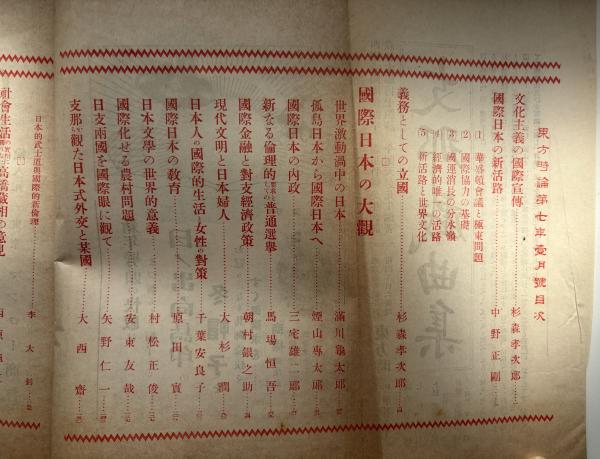 東方時論第七年壹月號目次
文化主義の國際宣傳 杉森孝次郎
國際日本の新活路 中野正剛
(1) 華盛頓會議と極東問題
(2) 國際協力の基礎
(3) 國運消長の分水嶺
(4) 經濟的唯一の活路
(5) 新活路と世界文化
義務としての立國 杉森孝次郎
國際日本の大觀
世界激動渦中の日本 滿川龜太郎
孤島日本から國際日本へ 煙山專太郎
國際日本の内政 三宅雄二郎
新なる倫理的要素としての普通選擧 馬場恒吾
國際金融と對支經濟政策 朝村銀之助
現代文明と日本婦人 大杉潤
日本人の國際的生活と女性の對策 千葉安良子
國際日本の敎育 原田實
日本文學の世界的意義 村松正俊
國際化せる農村問題 安東友哉
日支兩國を國際眼に觀て 矢野仁一
支那から觀た日本式外交と某國 大西齋
日本的武士道與國際的新倫理 李大釗
社會生活 高橋藏相の意見